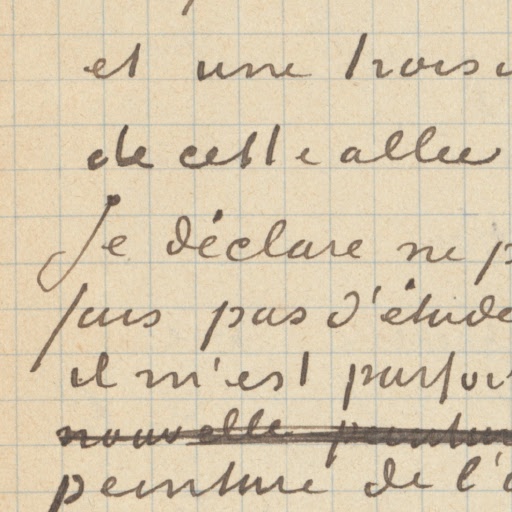 et une trois
de cette allee
Je déclare ne p
fais pas d'étude
il m'est parfoi
nouvelle peintur
peinture de l'